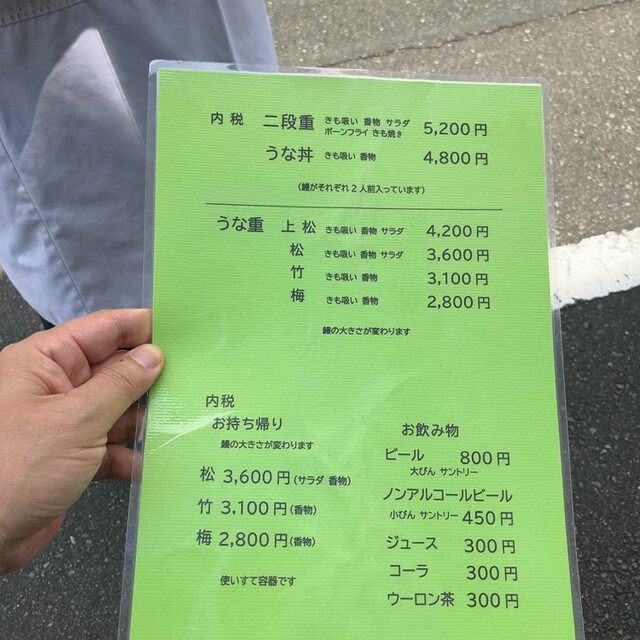 内税 二段重 きも吸い 香物 サラダ 5,200円
ボーンフライ きも焼き
うな丼 きも吸い 香物 4,800円
(鰻がそれぞれ2人前入っています)
うな重 上松 きも吸い 香物 サラダ 4,200円
松 きも吸い 香物 サラダ 3,600円
竹 きも吸い 香物 3,100円
梅 きも吸い 香物 2,800円
鰻の大きさが変わります
内税
お持ち帰り
鰻の大きさが変わります
松 3,600円(サラダ 香物)
竹 3,100円(香物)
梅 2,800円(香物)
使いすて容器です
お飲み物
ビール 800円
大びん サントリー
ノンアルコールビール
小びん サントリー 450円
ジュース 300円
コーラ 300円
ウーロン茶 300円